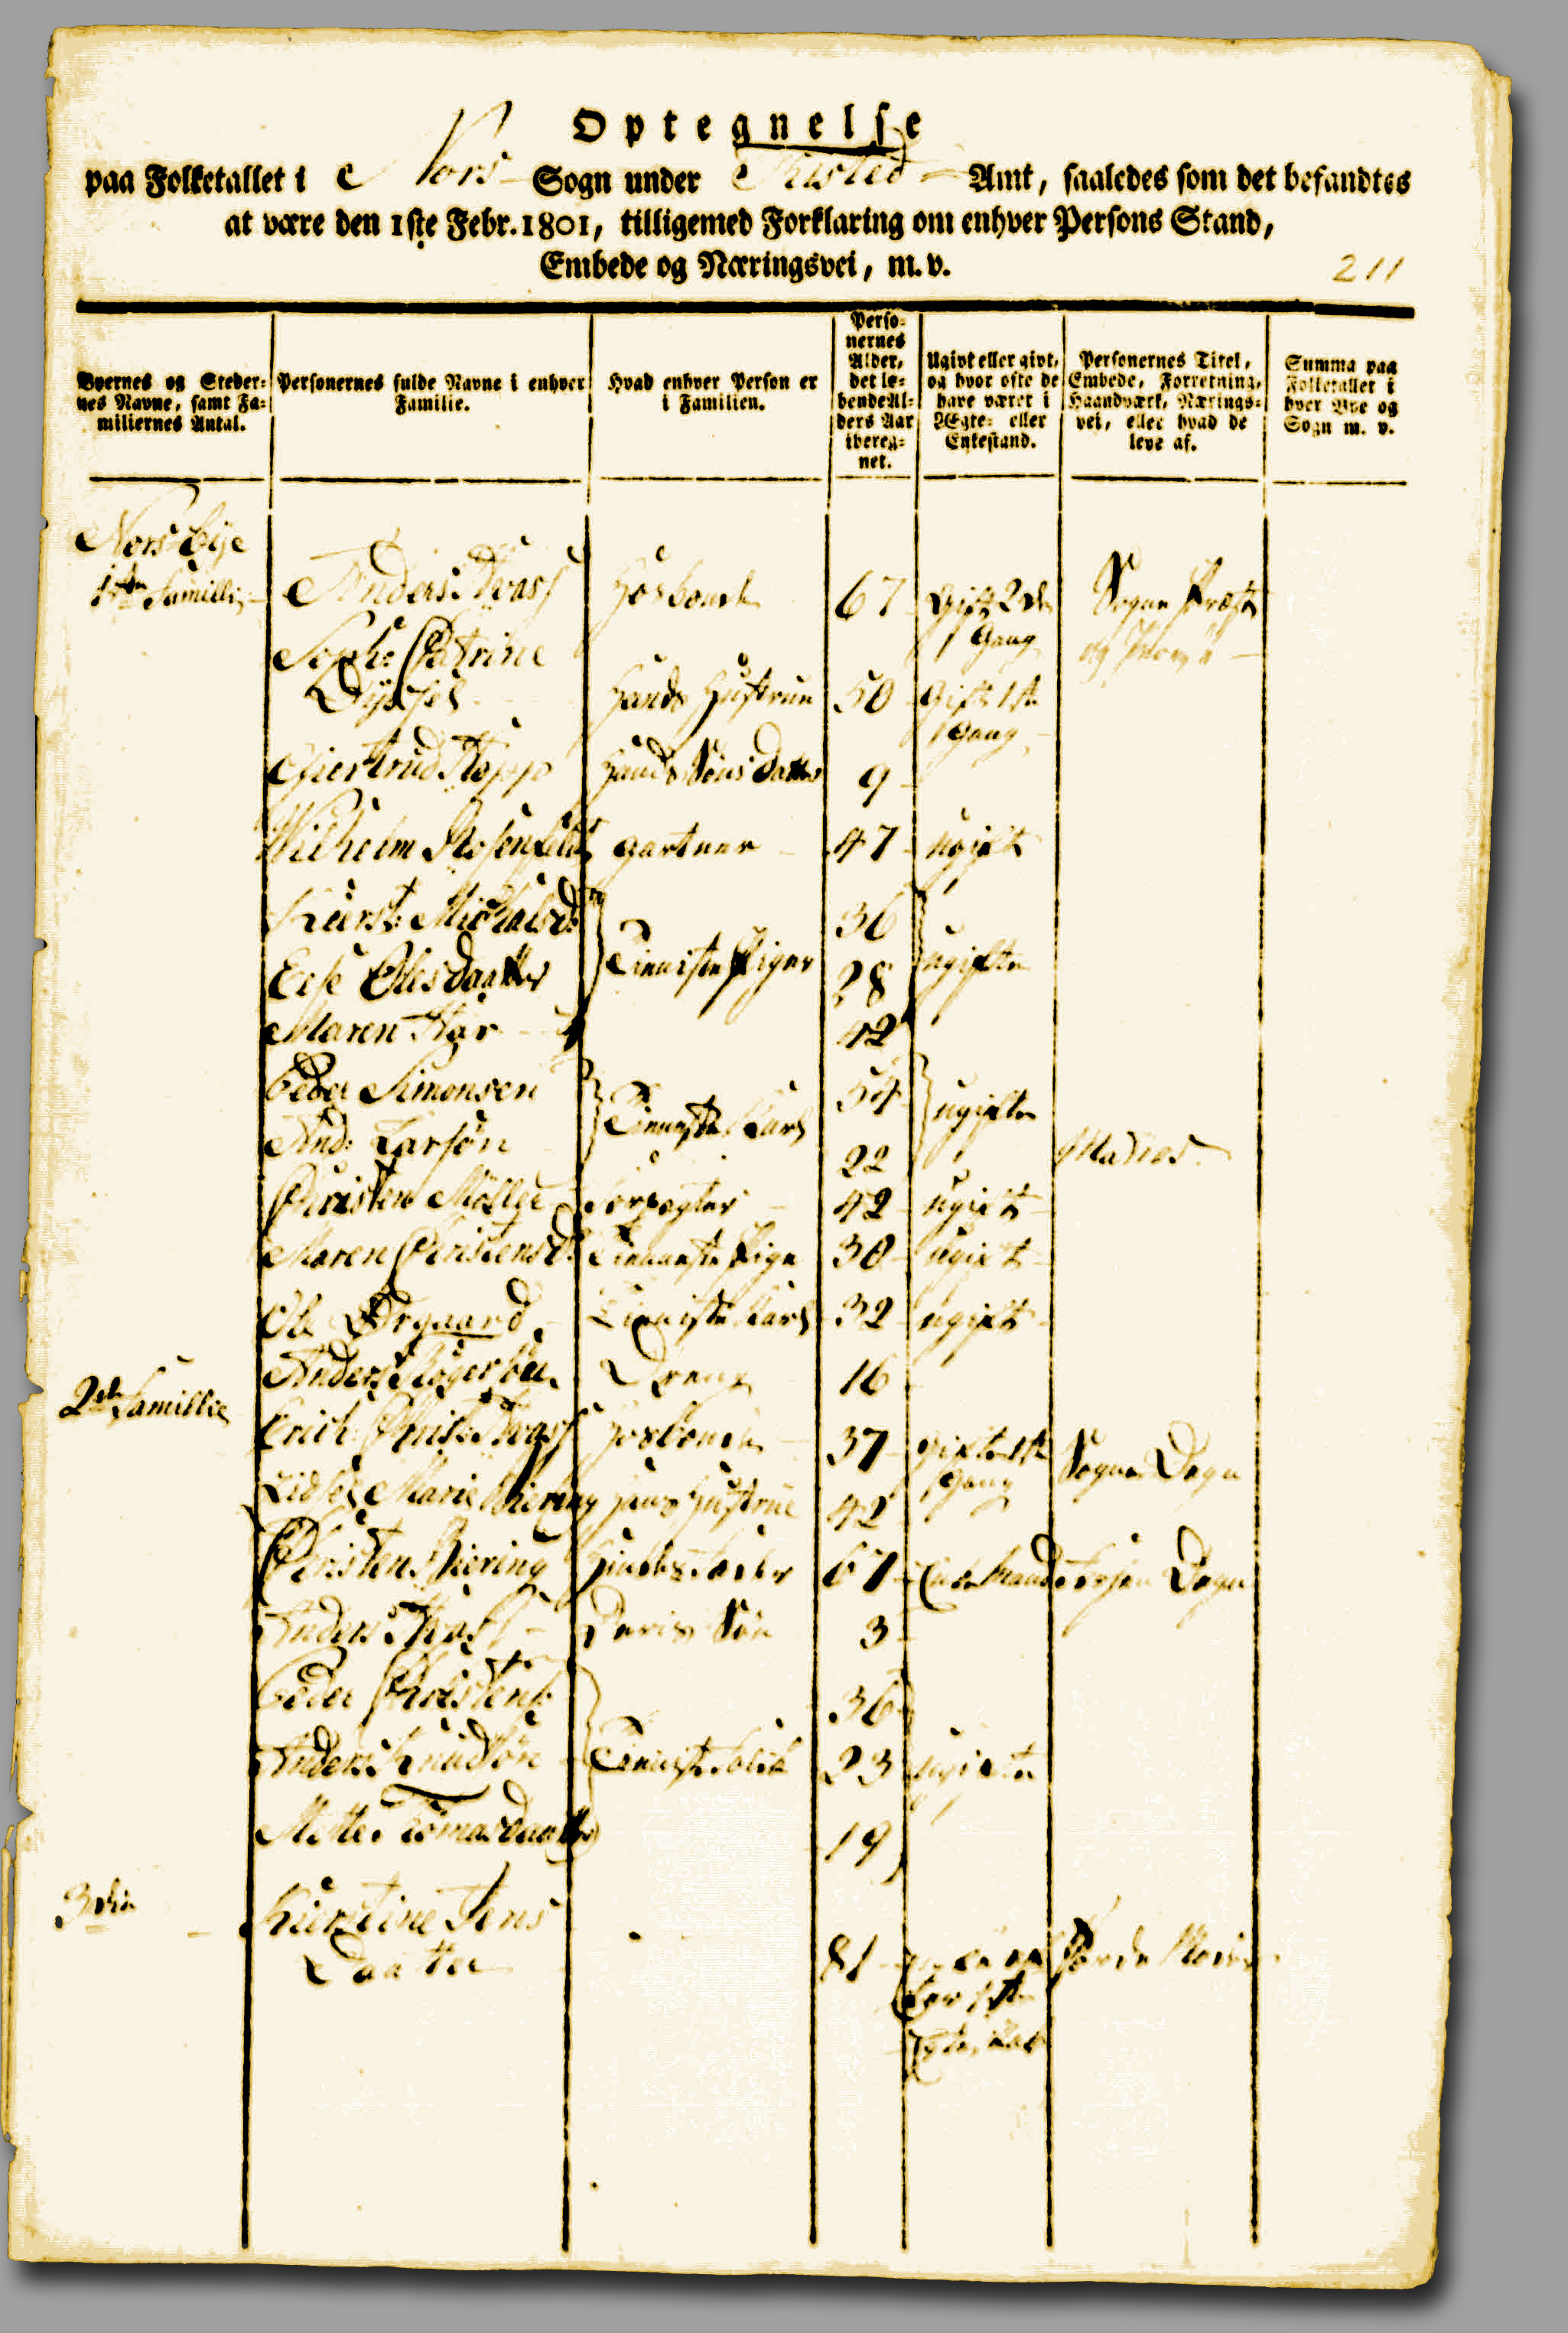 Optegnelse
paa Folketallet i Nors Sogn under Tisted Amt, saaledes som det befandtes
at være den 1ste Febr. 1801, tilligemed Forklaring om enhver Persons Stand,
Embede og Næringsvei, m. v.
211
Byernes og Steder-
nes Navne, samt Fa-
miliernes Antal.
Personernes fulde Navne i enhver
Familie.
Hvad enhver Person er
i Familien.
Perso-
nernes
Alder,
det le-
bende Al-
ders Aar
ibereg-
net.
Ugivt eller givt,
og hvor ofte de
have været i
Ægte- eller
Enkestand.
Personernes Titel,
Embede, Forretning,
Haandværk, Nærings-
vei, eller hvad de
leve af.
Summa paa
Folketallet i
hver Bye og
Sogn m. v.
Nors bye
1ste Famillie Anders Hosbonde 67 Gift 2de Sogne Præst
Gang og
Soph: Catrine
Hands Hustrue 50 Gift 1ste
Gang
Giertrud Hands Søns Datter 9
Wilhelm gartner 47 ugift
Kierst: 36
Else Olesdaatter Tieniste Piger 28 ugifte
Maren 42
Peder Simonsen 54
And: Larsøn Tieniste Karl 22 ugifte
Matros
Christen Møller Forpagter 42 ugift
Maren Christensd: Tieniste Pige 30 ugift
Ole Ørgaard Tieniste Karl 32 ugift
Anders Dreng 16
2den Famillie
Erich Christ: Hosbonde 37 gift 1ste Sogne Degn
Gang
Marie Biering Hans Hustrue 42
Christen Biering Hindes Fader 67 Enkemand Degn
Anders Deris Søn 3
Peder Christens: 36
Anders Knudsøn Tieniste Folk 23 ugifte
Mette Tomasdaatter 19
3die Kierstine Jens
Daatter 81